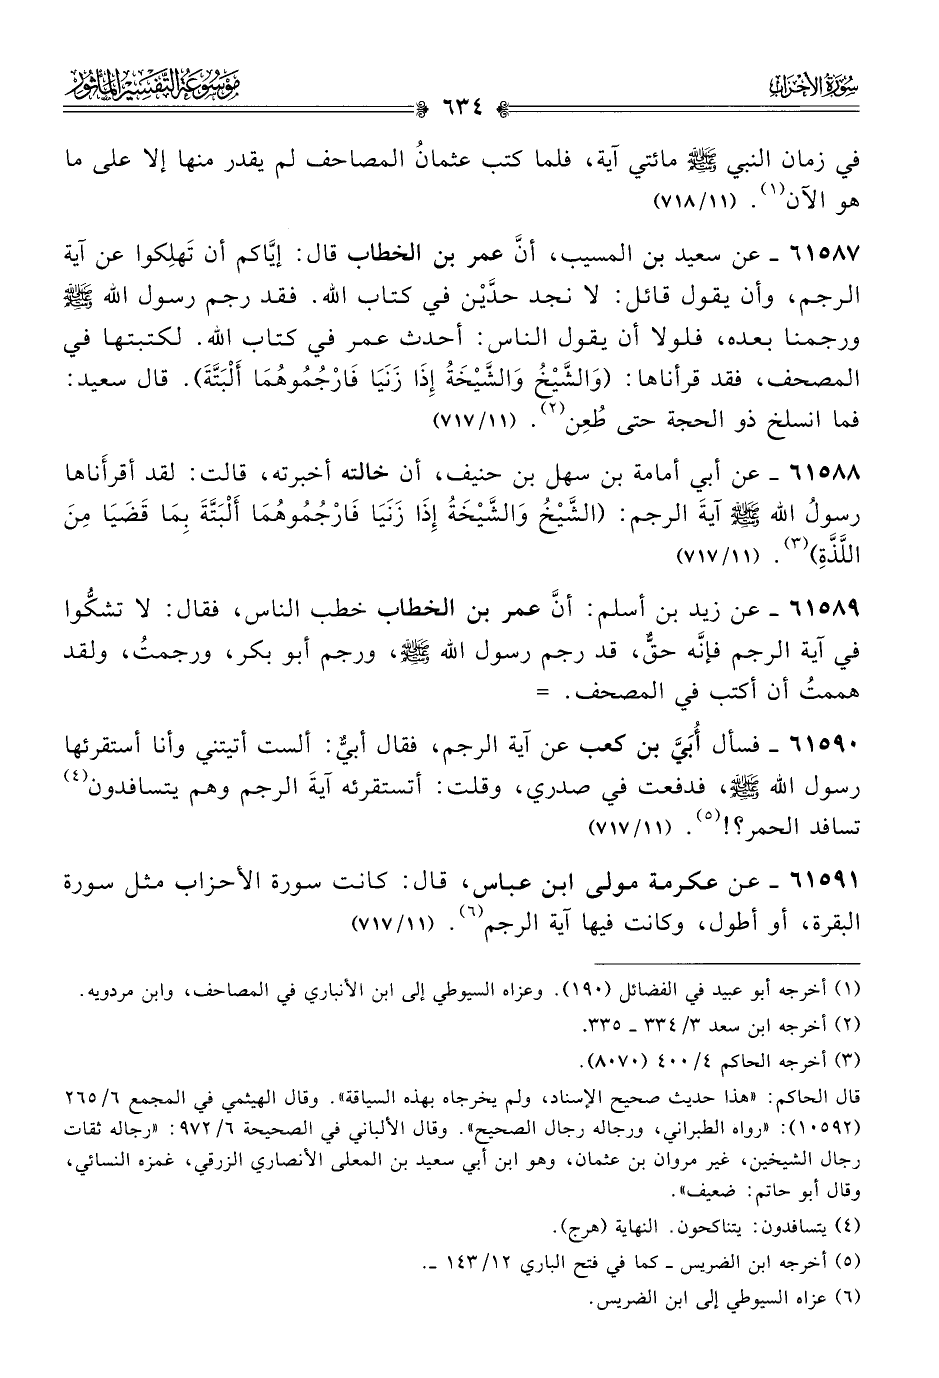 سُورَةُ الأَحْزَابِ
٦٣٤
مَوْسُوعَةُ التَّفْسِيرِ الْمَأْثُورِ
في زمان النبي ﷺ مائتي آية، فلما كتب عثمانُ المصاحف لم يقدر منها إلا على ما
هو الآن(١). (٧١٨/١١)
٦١٥٨٧ ـ عن سعيد بن المسيب، أنَّ عمر بن الخطاب قال: إيَّاكم أن تَهلِكوا عن آية
الرجم، وأن يقول قائل: لا نجد حدَّيْن في كتاب الله. فقد رجم رسول الله ﷺ
ورجمنا بعده، فلولا أن يقول الناس: أحدث عمر في كتاب الله. لكتبتها في
المصحف، فقد قرأناها: (وَالشَّيْخُ وَالشَّيْخَةُ إِذَا زَنَيَا فَارْجُمُوهُمَا أَلْبَتَّةَ). قال سعيد:
فما انسلخ ذو الحجة حتى طُعِن(٢). (٧١٧/١١)
٦١٥٨٨ ـ عن أبي أمامة بن سهل بن حنيف، أن خالته أخبرته، قالت: لقد أقرأَناها
رسولُ الله ﷺ آيةَ الرجم: (الشَّيْخُ وَالشَّيْخَةُ إِذَا زَنَيَا فَارْجُمُوهُمَا أَلْبَتَّةَ بِمَا قَضَيَا مِنَ
اللَّذَّةِ)(٣). (٧١٧/١١)
٦١٥٨٩ ـ عن زيد بن أسلم: أنَّ عمر بن الخطاب خطب الناس، فقال: لا تشكُّوا
في آية الرجم فإنَّه حقٌّ، قد رجم رسول الله ﷺ، ورجم أبو بكر، ورجمتُ، ولقد
هممتُ أن أكتب في المصحف. =
٦١٥٩٠ ـ فسأل أُبَيَّ بن كعب عن آية الرجم، فقال أبيٌّ: ألست أتيتني وأنا أستقرئها
رسول الله ﷺ، فدفعت في صدري، وقلت: أتستقرئه آيةَ الرجم وهم يتسافدون(٤)
تسافد الحمر؟!(٥). (٧١٧/١١)
٦١٥٩١ ـ عن عكرمة مولى ابن عباس، قال: كانت سورة الأحزاب مثل سورة
البقرة، أو أطول، وكانت فيها آية الرجم(٦). (٧١٧/١١)
(١) أخرجه أبو عبيد في الفضائل (١٩٠). وعزاه السيوطي إلى ابن الأنباري في المصاحف، وابن مردويه.
(٢) أخرجه ابن سعد ٣/ ٣٣٤ ـ ٣٣٥.
(٣) أخرجه الحاكم ٤/ ٤٠٠ (٨٠٧٠).
قال الحاكم: «هذا حديث صحيح الإسناد، ولم يخرجاه بهذه السياقة». وقال الهيثمي في المجمع ٦/ ٢٦٥
(١٠٥٩٢): «رواه الطبراني، ورجاله رجال الصحيح». وقال الألباني في الصحيحة ٦/ ٩٧٢: «رجاله ثقات
رجال الشيخين، غير مروان بن عثمان، وهو ابن أبي سعيد بن المعلى الأنصاري الزرقي، غمزه النسائي،
وقال أبو حاتم: ضعيف».
(٤) يتسافدون: يتناكحون. النهاية (هرج).
(٥) أخرجه ابن الضريس ـ كما في فتح الباري ١٢/ ١٤٣ ـ.
(٦) عزاه السيوطي إلى ابن الضريس.